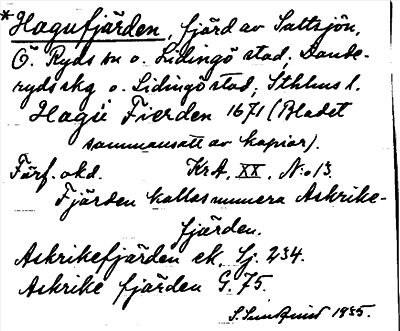 *Hagufjärden, fjärd av Saltsjön,
Ö. Ryds sn o. Lidingö stad, Dande-
ryds skg o. Lidingö stad, Sthlms l.
Hagü Fierden 1671 (Bladet
sammansatt av kopior).
Förf. okd. KrA, XX, N:o 13.
Fjärden kallas numera Askrike-
fjärden.
Askrikefjärden ek. Sj. 234.
Askrike fjärden G. 75.
S. Sundquist 1935.